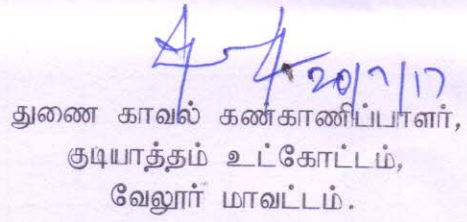 20/7/17
துணை காவல் கண்காணிப்பாளர்,
குடியாத்தம் உட்கோட்டம்,
வேலூர் மாவட்டம்.